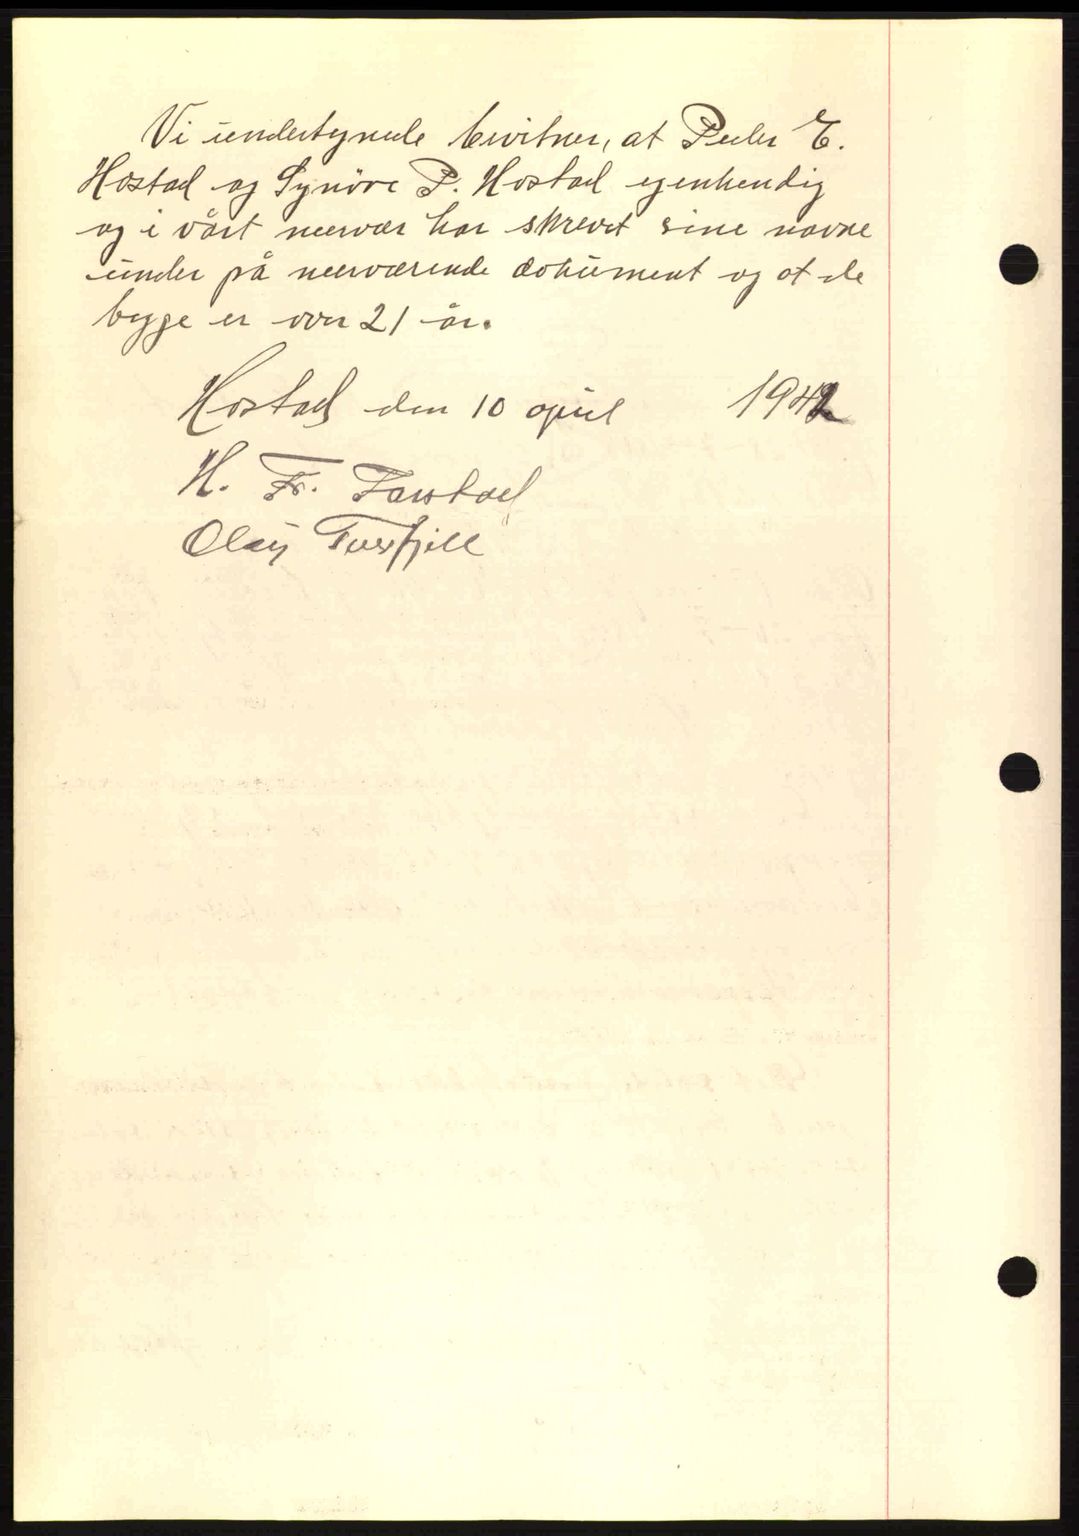 Vi undertegnede bevitner, at Peder E.
Hostad og Synöve P. Hostad egenhendig
og i vårt nærvær har skrevet sine navne
under på nærværende dokument og at de
begge er over 21 år.
Hostad den 10 april 1942
H. Fr. Farstad
Olay